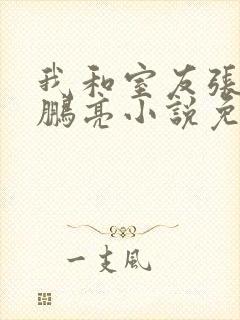 我和室友張
鵬亮小說免
一支風